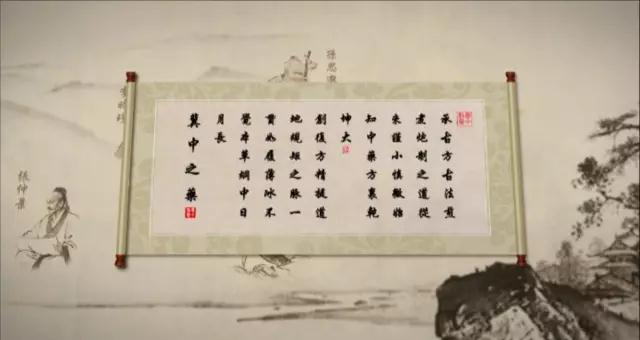 承古方古法煎
煮炮制之道從
來謹小慎微始
知中藥方裹乾
坤大
創復方精提道
地規矩之脉一
貫如履薄冰不
覺本草綱中日
月長
冀中之藥
孫思邈
張仲景